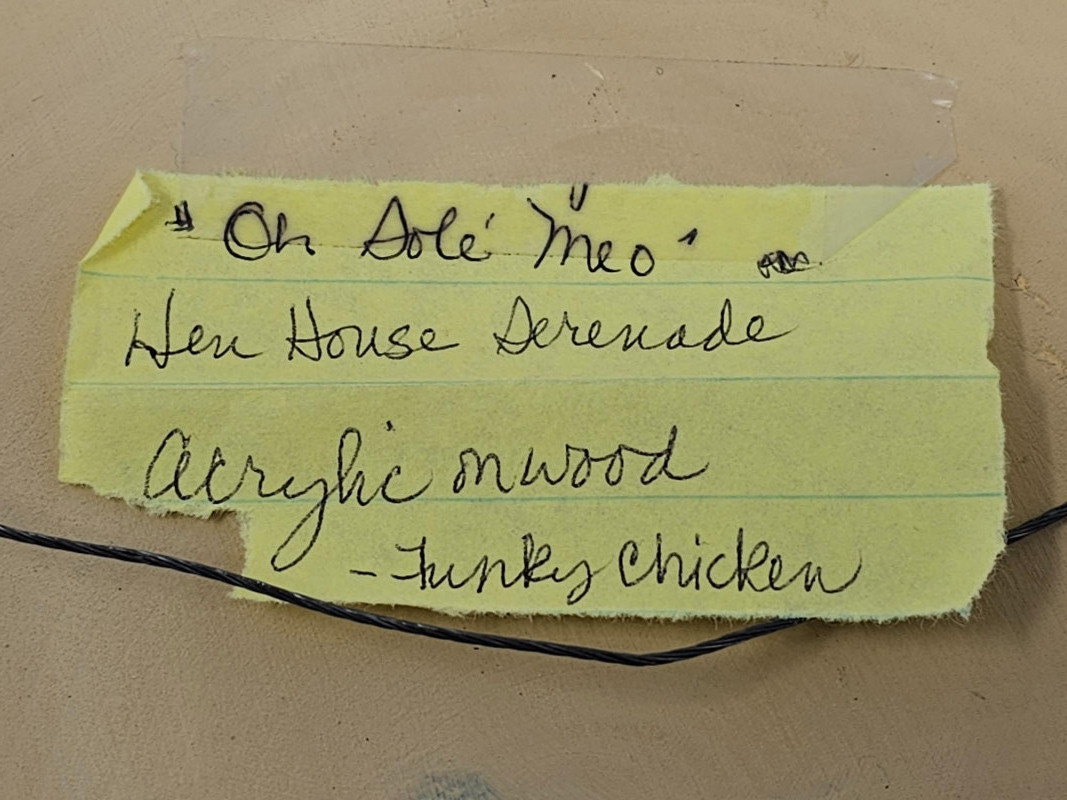 "Oh Solé Meo"
Hen House Serenade
Acrylic on wood
- Funky Chicken